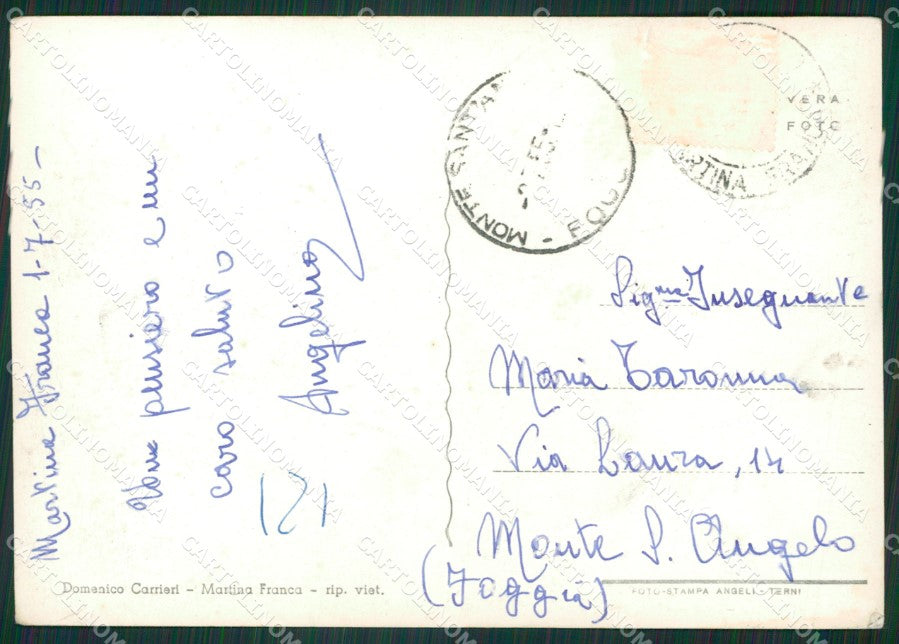 Martina Franca 1-7-55-
Un pensiero e un
caro saluto
Angelina
121
Domenico Carrieri - Martina Franca - rip. viet.
MONTE SANT'AN
FOGG
MARTINA FRANCA
VERA
FOTO
Sig.na Insegnante
Maria Taronna
Via Laura, 14
Monte S. Angelo
(Foggia)
FOTO-STAMPA ANGELI-TERNI
CARTOLINOMANIA